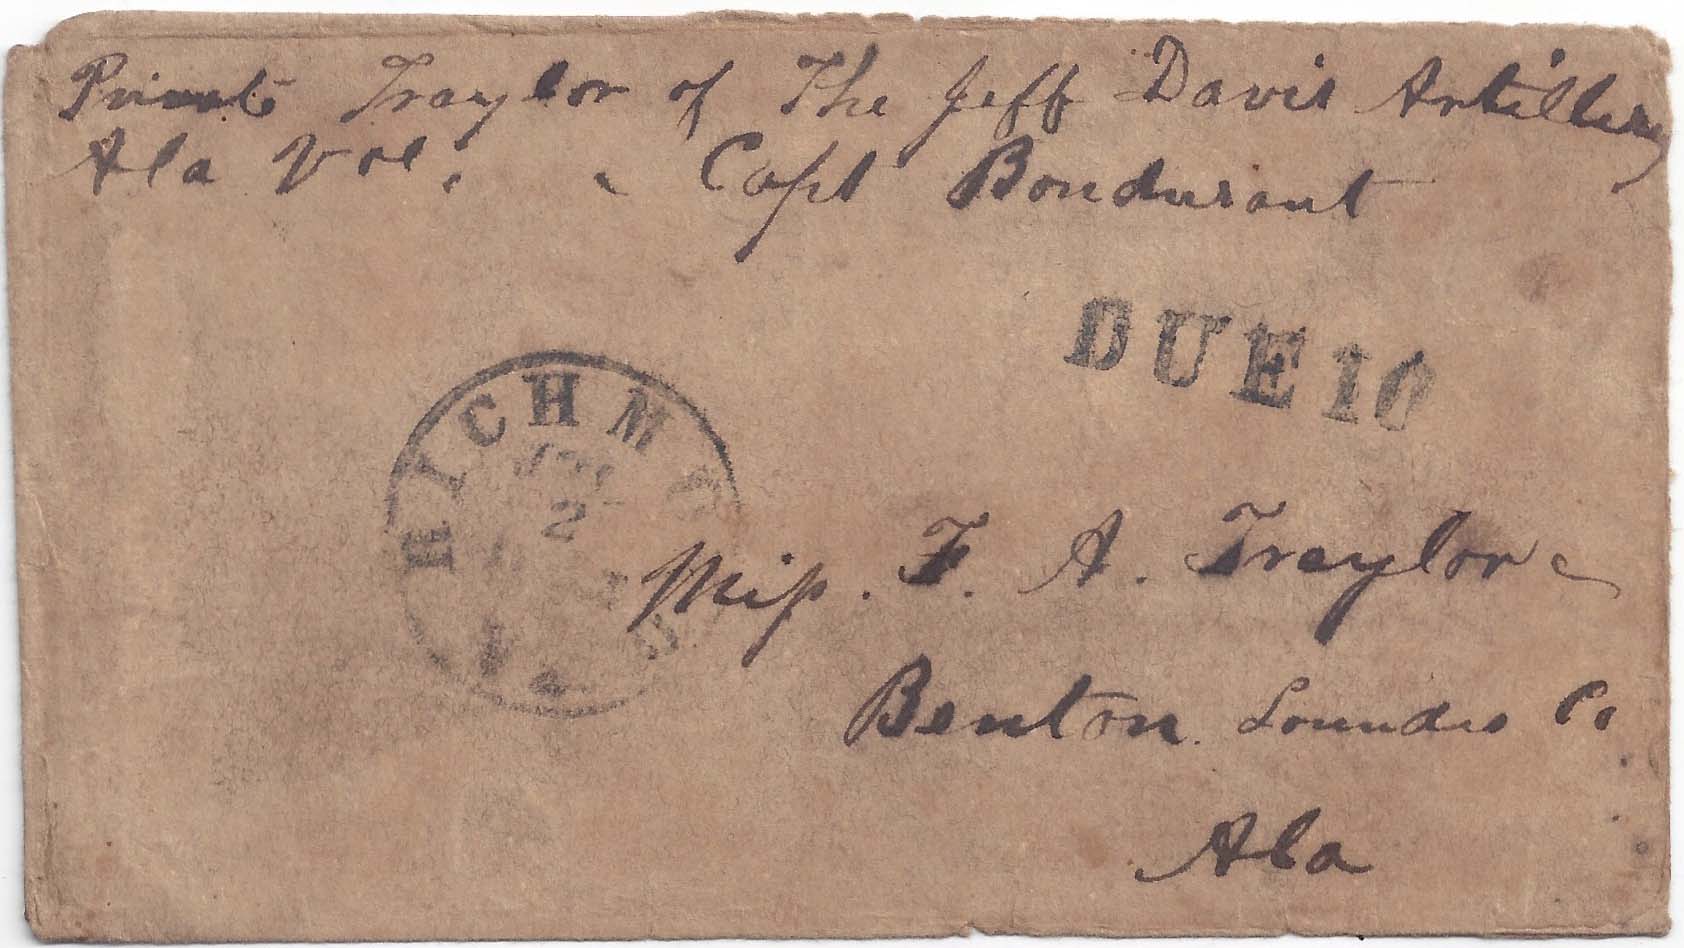 Private Traylor of The Jeff Davis Artillery
Ala Vol. Capt Bondurant
DUE 10
RICHMOND
2
VA.
Miss. F. A. Traylor
Benton. Lowndes Co
Ala